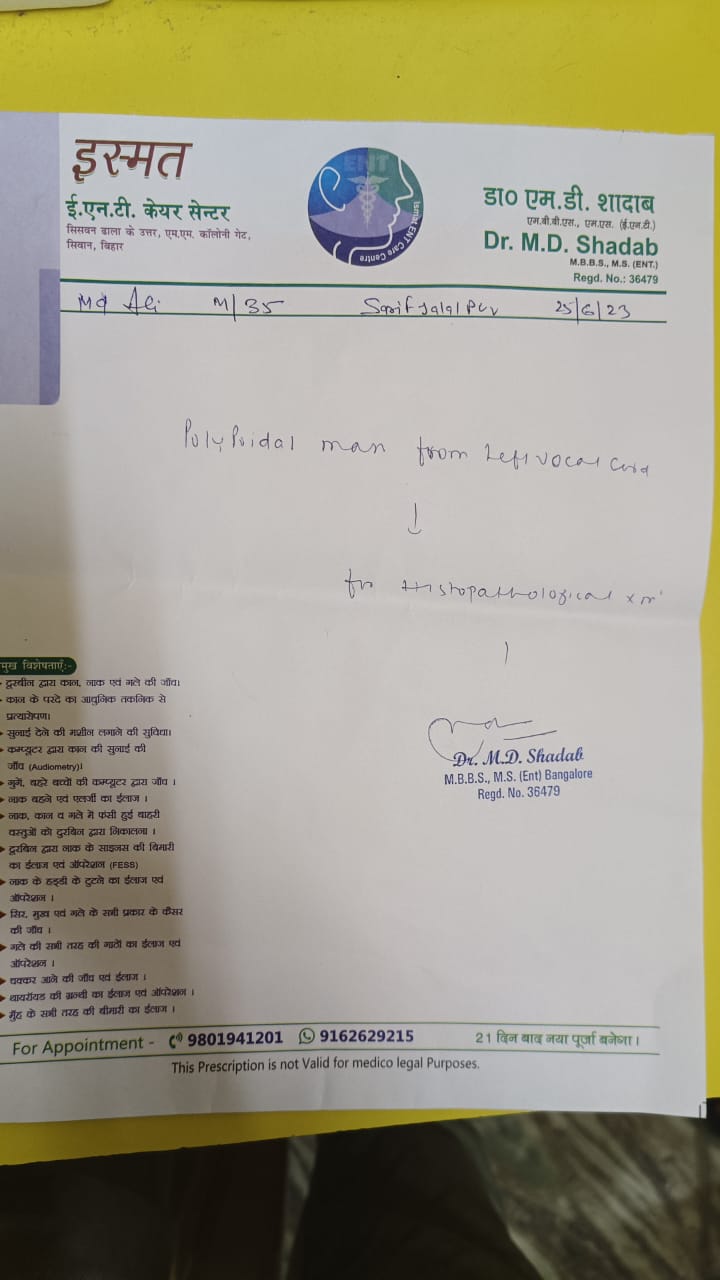 इस्मत
ई.एन.टी. केयर सेन्टर
सिसवन ढाला के उत्तर, एम.एम. कॉलोनी गेट,
सिवान, बिहार
ENT
Ismat ENT Care Centre
डा० एम.डी. शादाब
एम.बी.बी.एस., एम.एस. (ई.एन.टी.)
Dr. M.D. Shadab
M.B.B.S., M.S. (ENT.)
Regd. No.: 36479
Md Ali M/35 Sarif Jalalpur 25/6/23
Polypoidal mass from Left vocal cord
↓
for Histopathological xm
Dr. M.D. Shadab
M.B.B.S., M.S. (Ent) Bangalore
Regd. No. 36479
मुख विशेषताएँ:-
दूरबीन द्वारा कान, नाक एवं गले की जाँच।
कान के परदे का आधुनिक तकनिक से
प्रत्यारोपण।
सुनाई देने की मशीन लगाने की सुविधा।
कम्प्यूटर द्वारा कान की सुनाई की
जाँच (Audiometry)।
गुगें, बहरे बच्चों की कम्प्यूटर द्वारा जाँच ।
नाक बहने एवं एलर्जी का ईलाज ।
नाक, कान व गले मे फंसी हुई बाहरी
वस्तुओं को दुरबिन द्वारा निकालना ।
दूरबिन द्वारा नाक के साइनस की बिमारी
का ईलाज एवं ऑपरेशन (FESS)
नाक के हड्डी के टुटने का ईलाज एवं
ऑपरेशन ।
सिर, मुख एवं गले के सभी प्रकार के कैंसर
की जाँच ।
गले की सभी तरह की गाठों का ईलाज एवं
ऑपरेशन ।
चक्कर आने की जाँच एवं ईलाज ।
थायरॉयड की ग्रन्थी का ईलाज एवं ऑपरेशन ।
मुँह के सभी तरह की बीमारी का ईलाज ।
For Appointment - 9801941201 9162629215 21 दिन बाद नया पूर्जा बनेगा।
This Prescription is not Valid for medico legal Purposes.